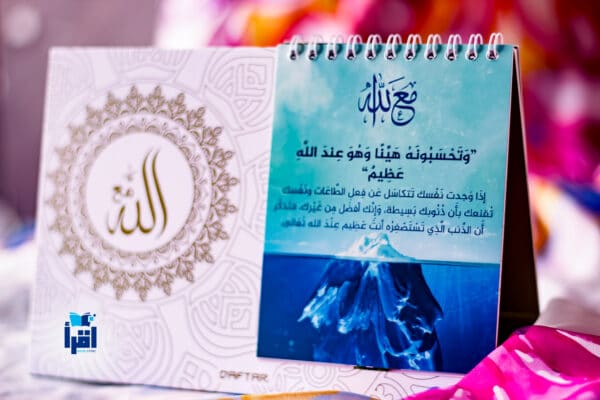 مع الله
”وَتَحْسَبُونَهُ هَيِّنًا وَهُوَ عِندَ اللَّهِ
عَظِيمٌ“
إذَا وَجدت نَفْسك تَتكاسَل عَن فِعل الطَّاعَات ونَفْسك
تُقنعك بأن ذُنُوبك بَسِيطة، وَإنَّك أفضَل مِن غَيْرك، فتذكر
أن الذَّنب الَّذِي تَسْتَصْغِرُه أنتَ عَظِيم عِندَ الله تَعَالى
مع الله
اقرأ
DAFTAR